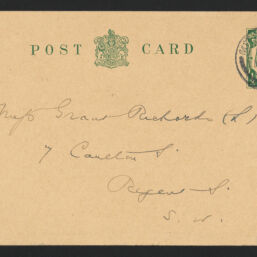 POST CARD
Mess Grant Richards (Ld)
7 Carlton St.
Regent St.
S. W.